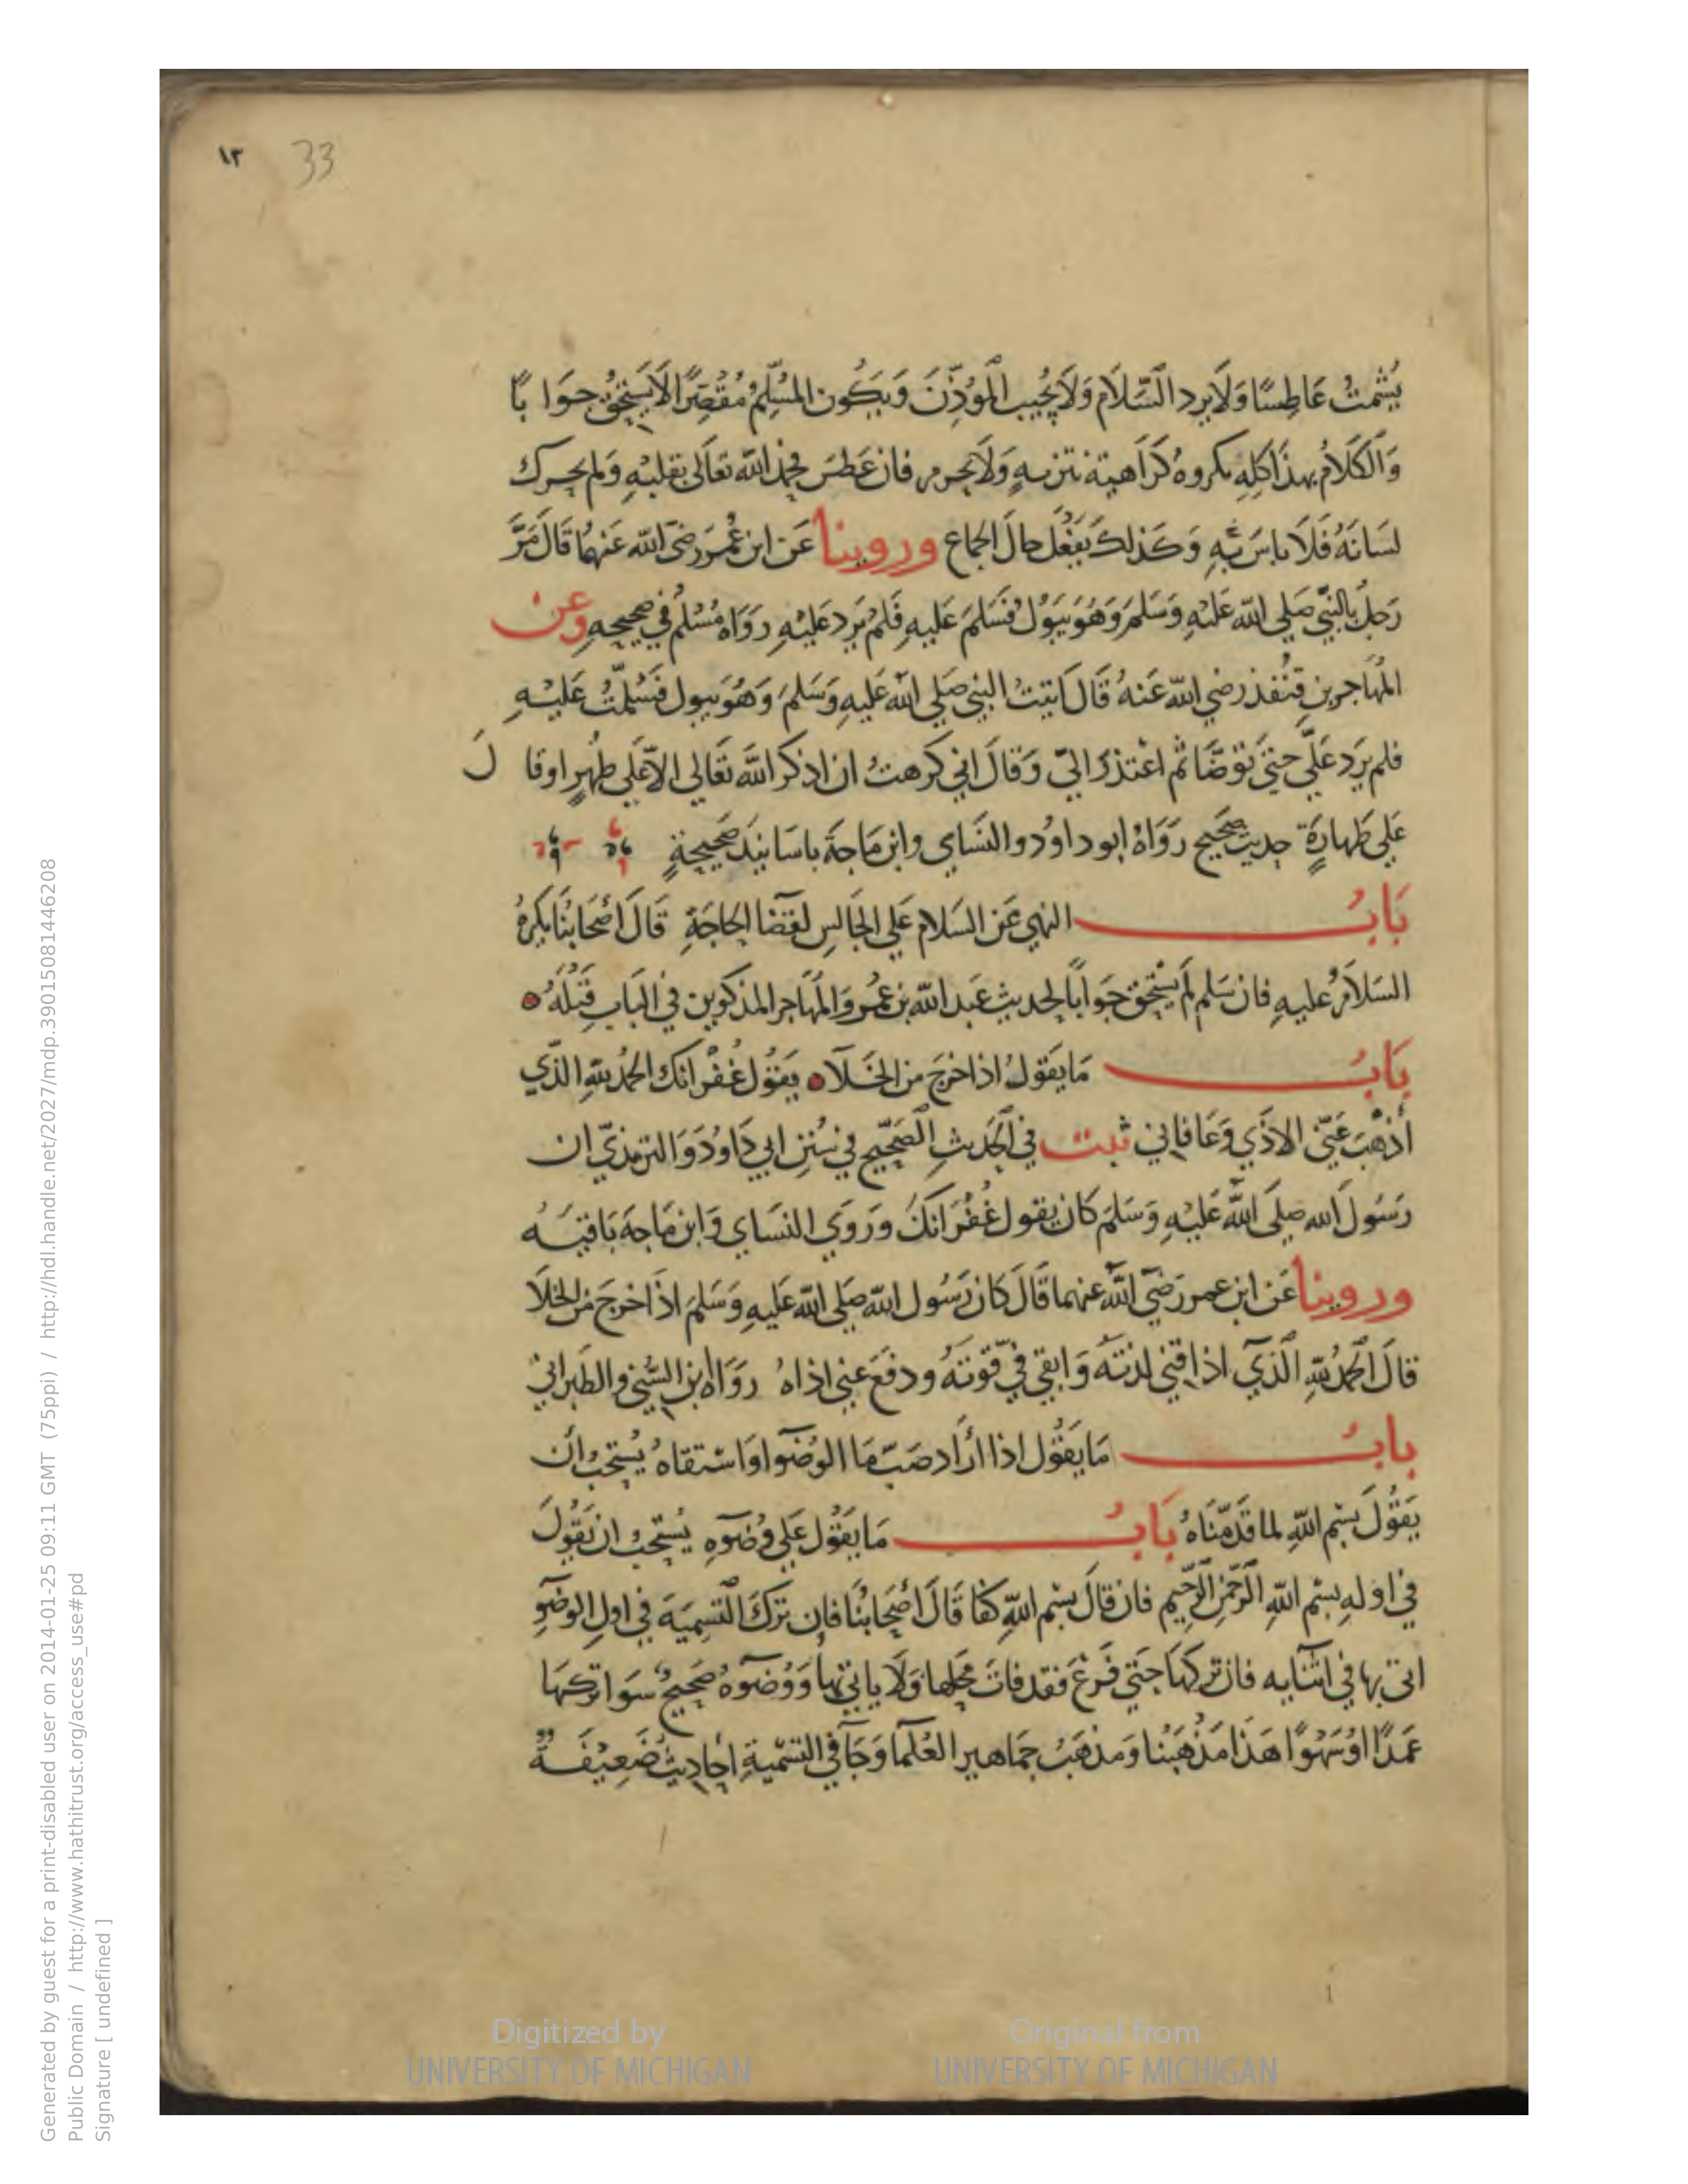 ١٣ 33
يُشَمتُ عَاطِسًا وَلَا يرد السَّلَام وَلَا يُجيب المُوَذِّنَ وَيَكُون المُسَلِّمُ مُقَصِرًا لَا يَسْتَحِقُ جوَابًا
وَالكَلَامُ بهذَا كلِهِ مكروهُ كَرَاهية تنزيهٍ وَلَا يحرم فان عَطسَ فحمِدَ اللّه تعَالى بقلبهِ وَلم يحرك
لسَانَهُ فَلَا باسَ بهِ وَكَذلكَ يَفْعَل حال الجماع وروينا عَن ابن عُمَر رضى اللّه عَنهمُا قَال مَرَّ
رَجلٌ بالنبيِّ صَلي اللّه عَليْهِ وَسَلمَ وَهُوَ يَبُولُ فسَلمَ عَليهِ فَلمْ يَرد عَليْهِ رَوَاهُ مُسْلمُ في صحيحهِ وعن
المُهَاجر بن قنفُذ رضي اللّه عَنهُ قَال اتيتُ النبي صَلي اللّه عَليهِ وَسَلمَ وَهُوَ يبول فسَلمّتُ عَليْهِ
فلم يَرَد عَلَيَّ حتيَ توَضَّا ثم اعْتذَرَ اليّ وَقَالَ اني كَرهتُ ان اذكر اللّه تَعَالي الّا عَلي طُهرٍ او قالَ
عَلي طَهارَةٍ حديث صَحيح رَوَاهُ ابو داوُد والنسَاي وابن مَاجةَ باسَانيدَ صَحيحةٍ
بَابُ النهي عَن السَلام عَلي الجَالسِ لقضَا الحَاجَةِ قَالَ اصْحَابُنَا يكرهُ
السَلَامُ عليهِ فان سَلم لَم يَسْتحِق جَوَابًا لحديث عَبد اللّه بن عمُر وَالمُهَاجر المذكورين في البَاب قَبلَهُ
بَابُ مَا يقولُ اذا اخرَجَ من الخَلآ يقوُل غُفْرَانَك الحمدُ للّهِ الذَّي
أذْهَبَ عَنِّي الاذَي وَعَافاني ثبت في الحَديثِ الصَحيْح في سُنَن ابي دَاودَ وَالترمذيِّ ان
رَسُول الله صلَي اللّه عَليْهِ وَسَلمَ كَان يقول غُفْرَانكَ وَرَوَي النسَاي وَابن مَاجهَ بَاقيَه
وروينا عَن ابن عمر رَضَي اللّهَ عنهما قَالَ كَان رَسُول اللّه صَلي اللّه عَليهِ وَسَلمَ اذَا خرجَ من الخلَا
قالَ الحَمدُ للّهِ الَّذي اذاقني لذتهُ وَابقي فيَّ قوّتهُ ودفعَ عَني اذاهُ رَوَاهُ ابن السُّني والطبراني
بابُ مَا يَقوُل اذا ارَاد صَبّ مَا الوُضوٓ اوَ اسْتقاهُ يُستَحبُ أن
يَقوُلَ بسْم اللّهِ لما قدَمّنَاهُ بَابُ مَا يَقوُل عَلي وُضوٓهِ يُستحبُ ان يَقوُلَ
في اوَلهِ بسْم اللّهِ الرَّحمْنِ الرَّحيم فان قالَ بسْم اللّهِ كفَا قَالَ اصْحَابُنَا فان تركَ التسِميَة في اولِ الوضوِٓ
اتى بها في اثنَايه فان تركهَا حتَي فَرغ فقد فاتَ محَلها فَلَا ياتي بهَا وَوُضوٓهُ صَحيحٌ سَوَا تركهَا
عَمَدًا اوُ سَهْوًا هَذَا مَذْهَبُنا وَمَذهَبُ جمَاهير العُلمَا وَجَآ في التسَميةِ احَادِيثُ ضَعِيفَةٌ
Generated by guest for a print-disabled user on 2014-01-25 09:11 GMT (75ppi) / http://hdl.handle.net/2027/mdp.39015081446208
Public Domain / http://www.hathitrust.org/access_use#pd
Signature [ undefined ]
Digitized by
UNIVERSITY OF MICHIGAN
Original from
UNIVERSITY OF MICHIGAN